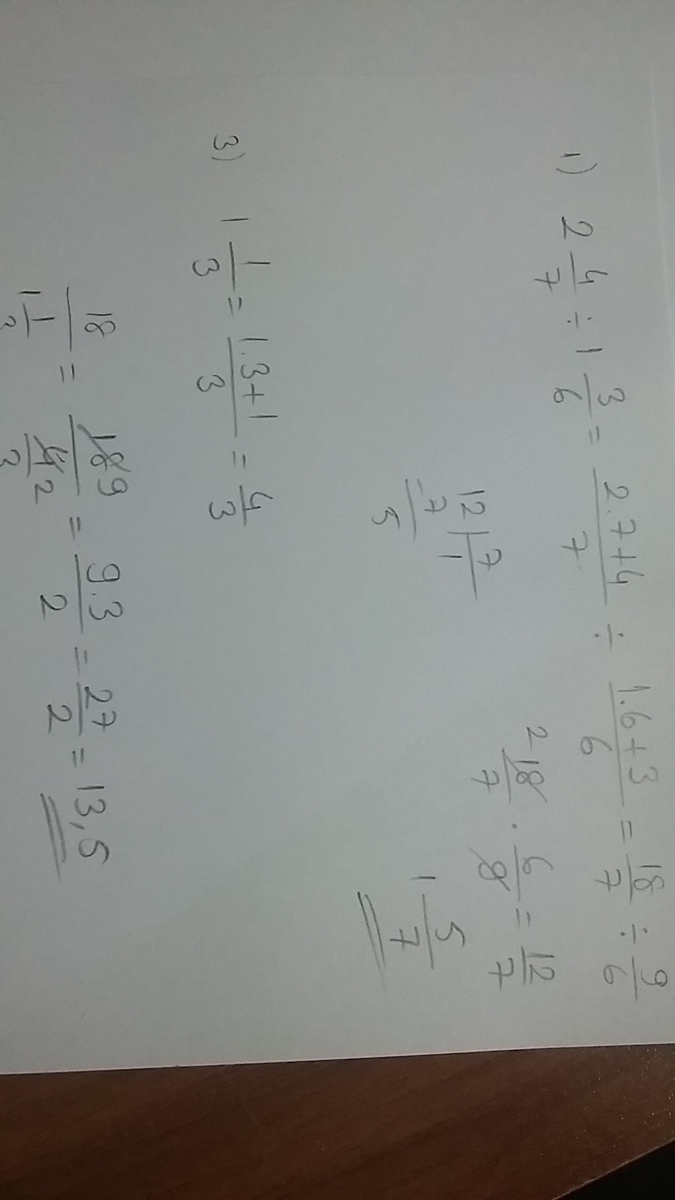 1) 2 4/7 ÷ 1 3/6 = (2.7+4)/7 ÷ (1.6+3)/6 = 18/7 ÷ 9/6
2 18/7 . 6/9 = 12/7
12 | 7
-7 | 1
5
1 5/7
3) 1 1/3 = (1.3+1)/3 = 4/3
18/(1 1/3) = 18 9/(4 2/3) = 9.3/2 = 27/2 = 13,5